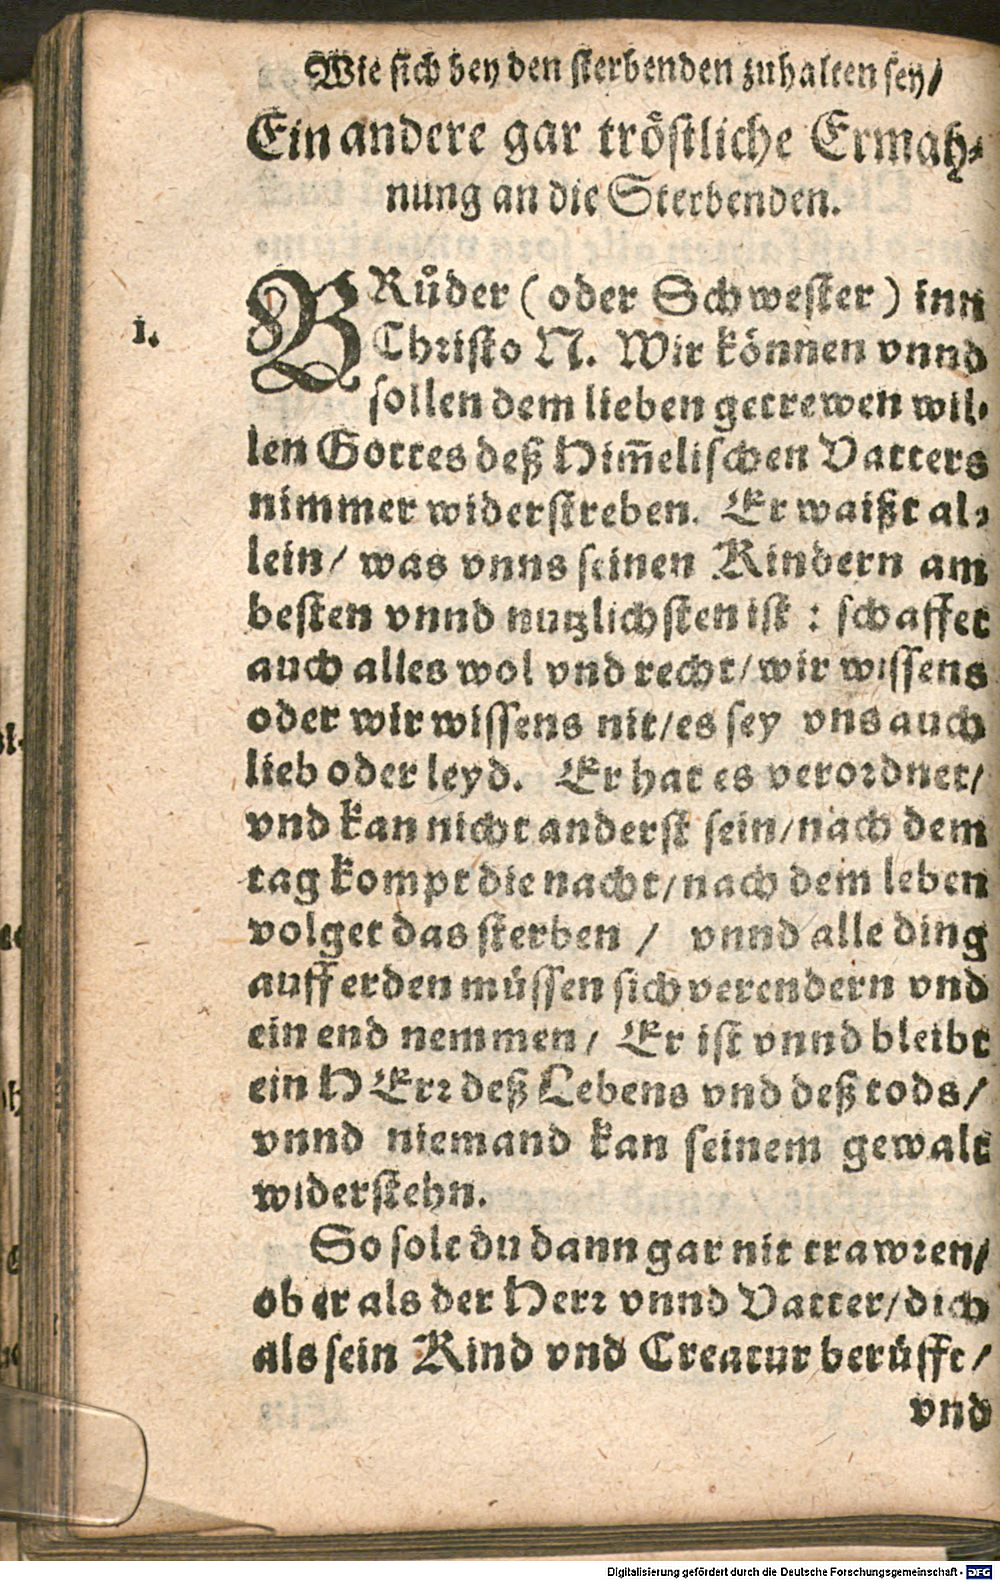 Wie sich bey den sterbenden zuhalten sey/
Ein andere gar tröstliche Ermah⸗
nung an die Sterbenden.
1.
BRůder (oder Schwester) inn
Christo N. Wir können vnnd
sollen dem lieben getrewen wil⸗
len Gottes deß Him̅elischen Vatters
nimmer widerstreben. Er waißt al⸗
lein/ was vnns seinen Kindern am
besten vnnd nutzlichsten ist : schaffet
auch alles wol vnd recht/ wir wissens
oder wir wissens nit/ es sey vns auch
lieb oder leyd. Er hat es verordnet/
vnd kan nicht anderst sein/ nach dem
tag kompt die nacht/ nach dem leben
volget das sterben / vnnd alle ding
auff erden müssen sich verendern vnd
ein end nemmen/ Er ist vnnd bleibt
ein HErr deß Lebens vnd deß tods/
vnnd niemand kan seinem gewalt
widerstehn.
So solt du dann gar nit trawren/
ob er als der Herr vnnd Vatter/ dich
als sein Kind vnd Creatur berüfft/
vnd
Digitalisierung gefördert durch die Deutsche Forschungsgemeinschaft - DFG